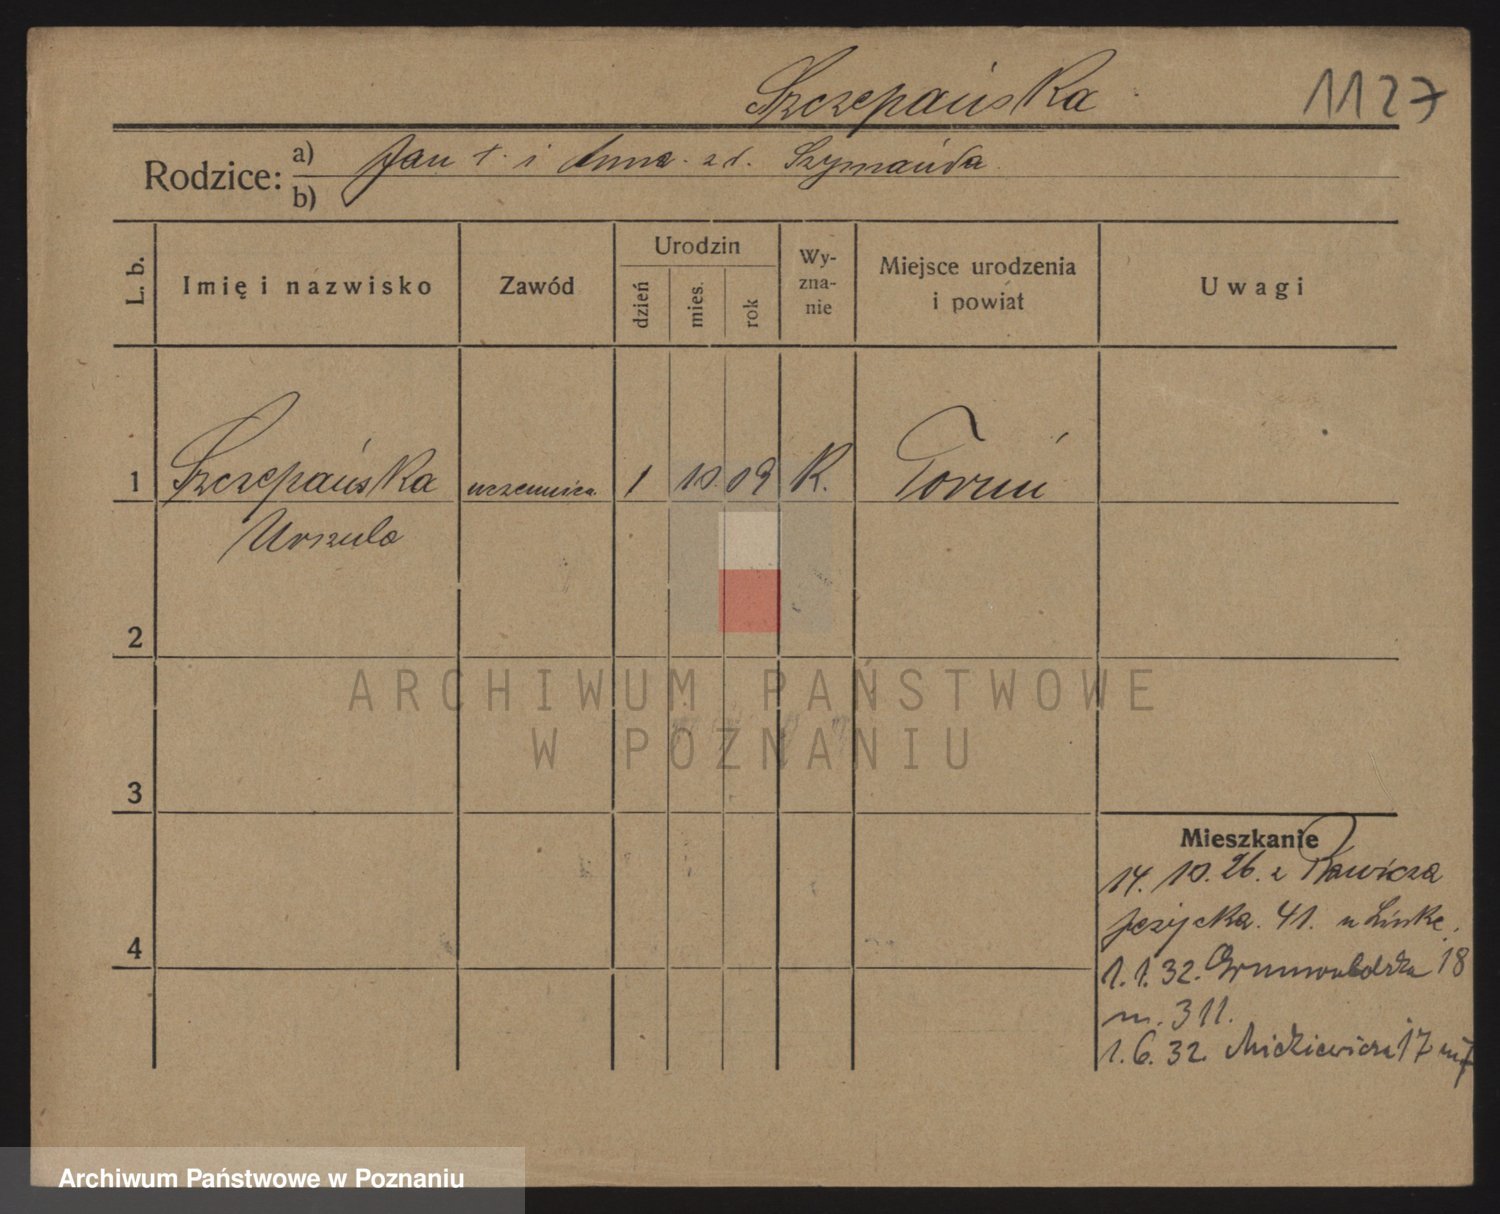 Szczepańska
1127
Rodzice: a) Jan †. i Anna. zd. Szymańda
b)
L. b. Imię i nazwisko Zawód Urodzin dzień mies. rok Wy-zna-nie Miejsce urodzenia i powiat Uwagi
1 Szczepańska uczennica 1 10. 09 R. Toruń
Urszula
2
ARCHIWUM PAŃSTWOWE
W POZNANIU
3
Mieszkanie
14. 10. 26. z Rawicza
Jeżycka. 41. u Linke.
4
1.1.32. Grunwaldzka 18
m. 311.
1.6.32. Mickiewicza 17 m 7
Archiwum Państwowe w Poznaniu